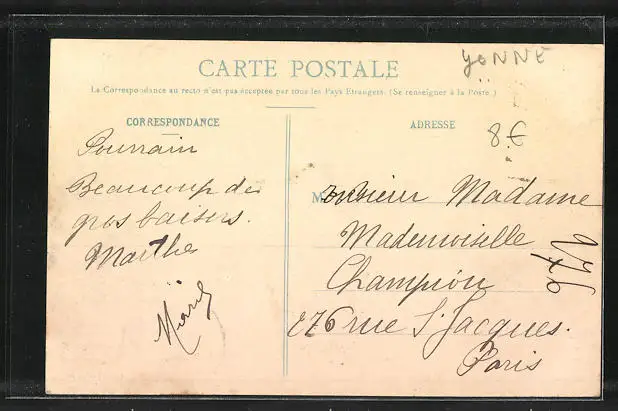 YONNE
CARTE POSTALE
La Correspondance au recto n'est pas acceptée par tous les Pays Etrangers. (Se renseigner à la Poste.)
CORRESPONDANCE
ADRESSE
8 €
Pourrain
Beaucoup de
gros baisers.
Marthe
Marie
Monsieur Madame
Mademoiselle
Champion
276 rue S. Jacques.
Paris